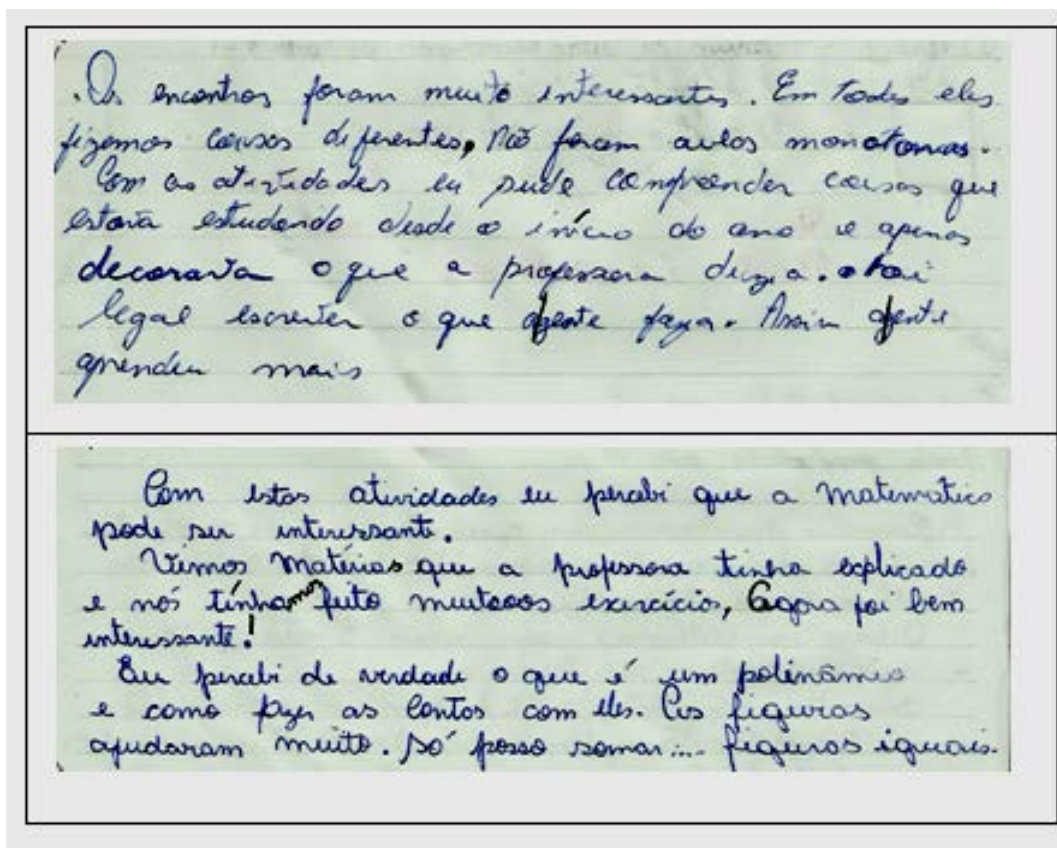 .Os encontros foram muito interessantes. Em todos eles
fizemos coisas diferentes, não foram aulas monotomas.
Com as atividades eu pude compreender coisas que
estava estudando desde o início do ano e apenas
decorava o que a professora dizia. foi
legal escrever o que agente fazia. Assim agente
aprendeu mais
Com estas atividades eu percebi que a matemática
pode ser interessante.
Vimos matérias que a professora tinha explicado
e nós tínhamos feito muitooos exercícios, Agora foi bem
interessante!
Eu percebi de verdade o que é um polinômio
e como fazer as contas com eles. As figuras
ajudaram muito. Só posso somar.... figuras iguais.